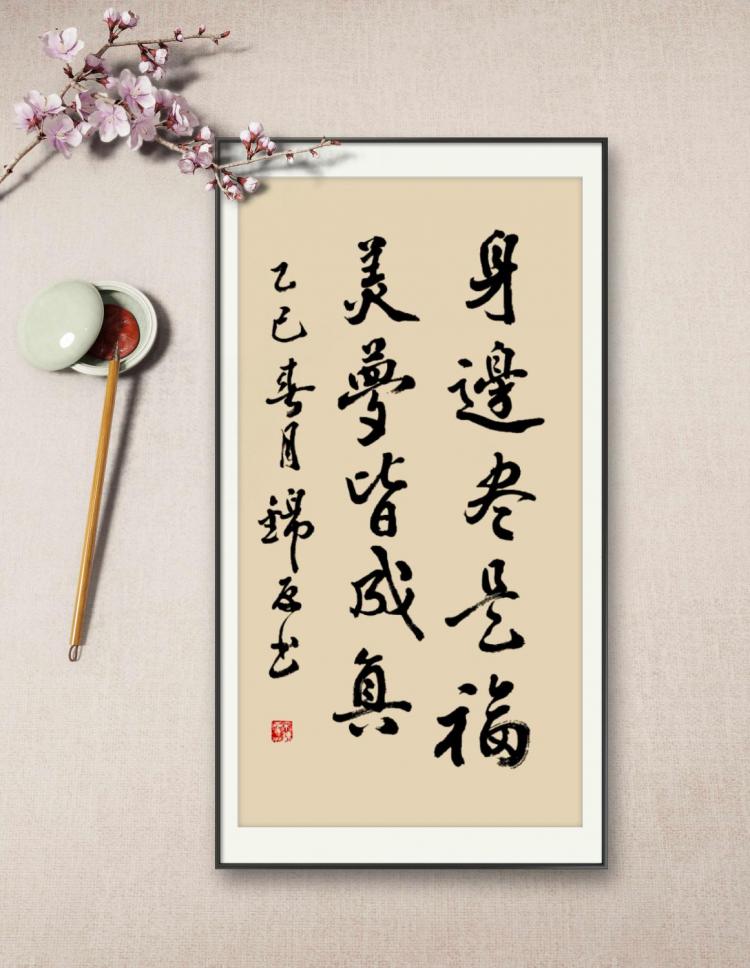 身邊尽是福
美夢皆成真
乙巳春月錦原书